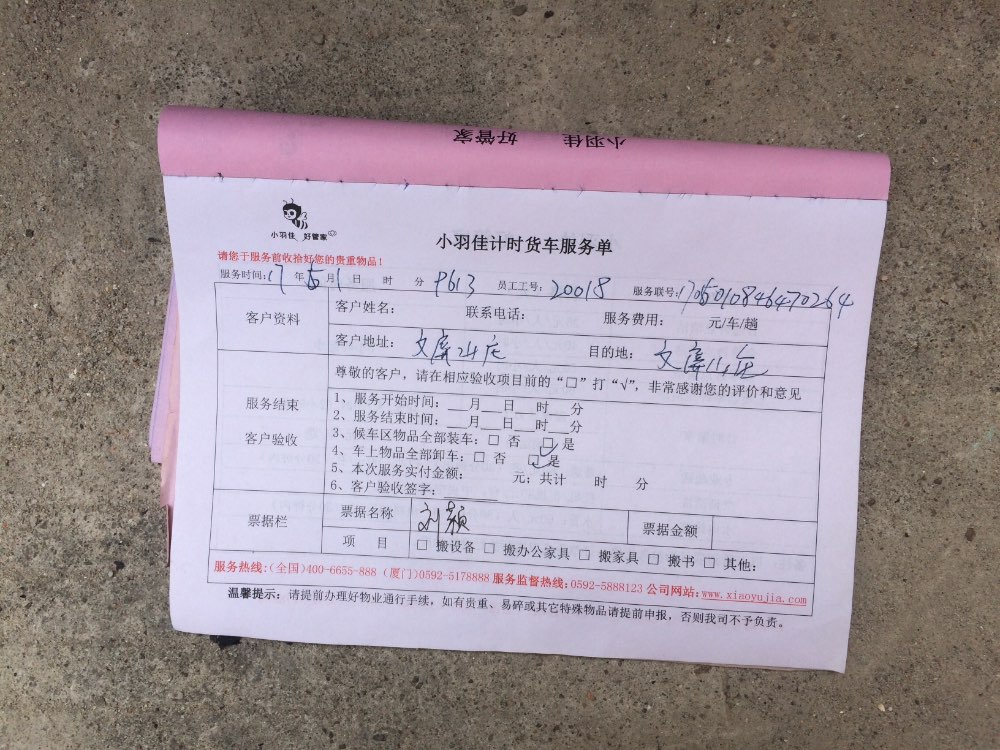 小羽佳 好管家
小羽佳 好管家
小羽佳计时货车服务单
请您于服务前收拾好您的贵重物品！
服务时间：17年5月1日 时 分 P613 员工工号：20018 服务联号：1705010846470264
客户资料
客户姓名： 联系电话： 服务费用： 元/车/趟
客户地址：文屏山庄 目的地：文屏山庄
服务结束
客户验收
尊敬的客户，请在相应验收项目前的“□”打“√”，非常感谢您的评价和意见
1、服务开始时间：___月___日___时___分
2、服务结束时间：___月___日___时___分
3、候车区物品全部装车：□ 否 □ 是
4、车上物品全部卸车：□ 否 □ 是
5、本次服务实付金额： 元；共计 时 分
6、客户验收签字：________
票据栏
票据名称 刘颖 票据金额
项 目 □ 搬设备 □ 搬办公家具 □ 搬家具 □ 搬书 □ 其他：
服务热线：（全国）400-6655-888（厦门）0592-5178888 服务监督热线：0592-5888123 公司网站：www.xiaoyujia.com
温馨提示：请提前办理好物业通行手续，如有贵重、易碎或其它特殊物品请提前申报，否则我司不予负责。